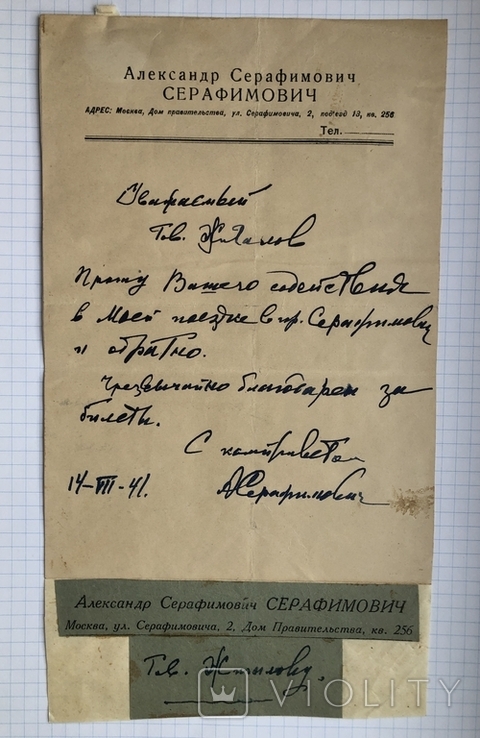 Александр Серафимович
СЕРАФИМОВИЧ
АДРЕС: Москва, Дом правительства, ул. Серафимовича, 2, под'езд 13, кв. 256
Тел.
Уважаемый
Тов.
Прошу Вашего содействия
в моей поездке в гор. Серафимович
и обратно.
Чрезвычайно благодарен за
билеты.
С комприветом
14-VII-41. АСерафимович
Александр Серафимович СЕРАФИМОВИЧ
Москва, ул. Серафимовича, 2, Дом Правительства, кв. 256
Тов.
VIOLITY